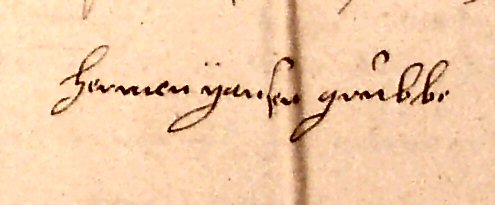 hermen ÿansen grůbbe